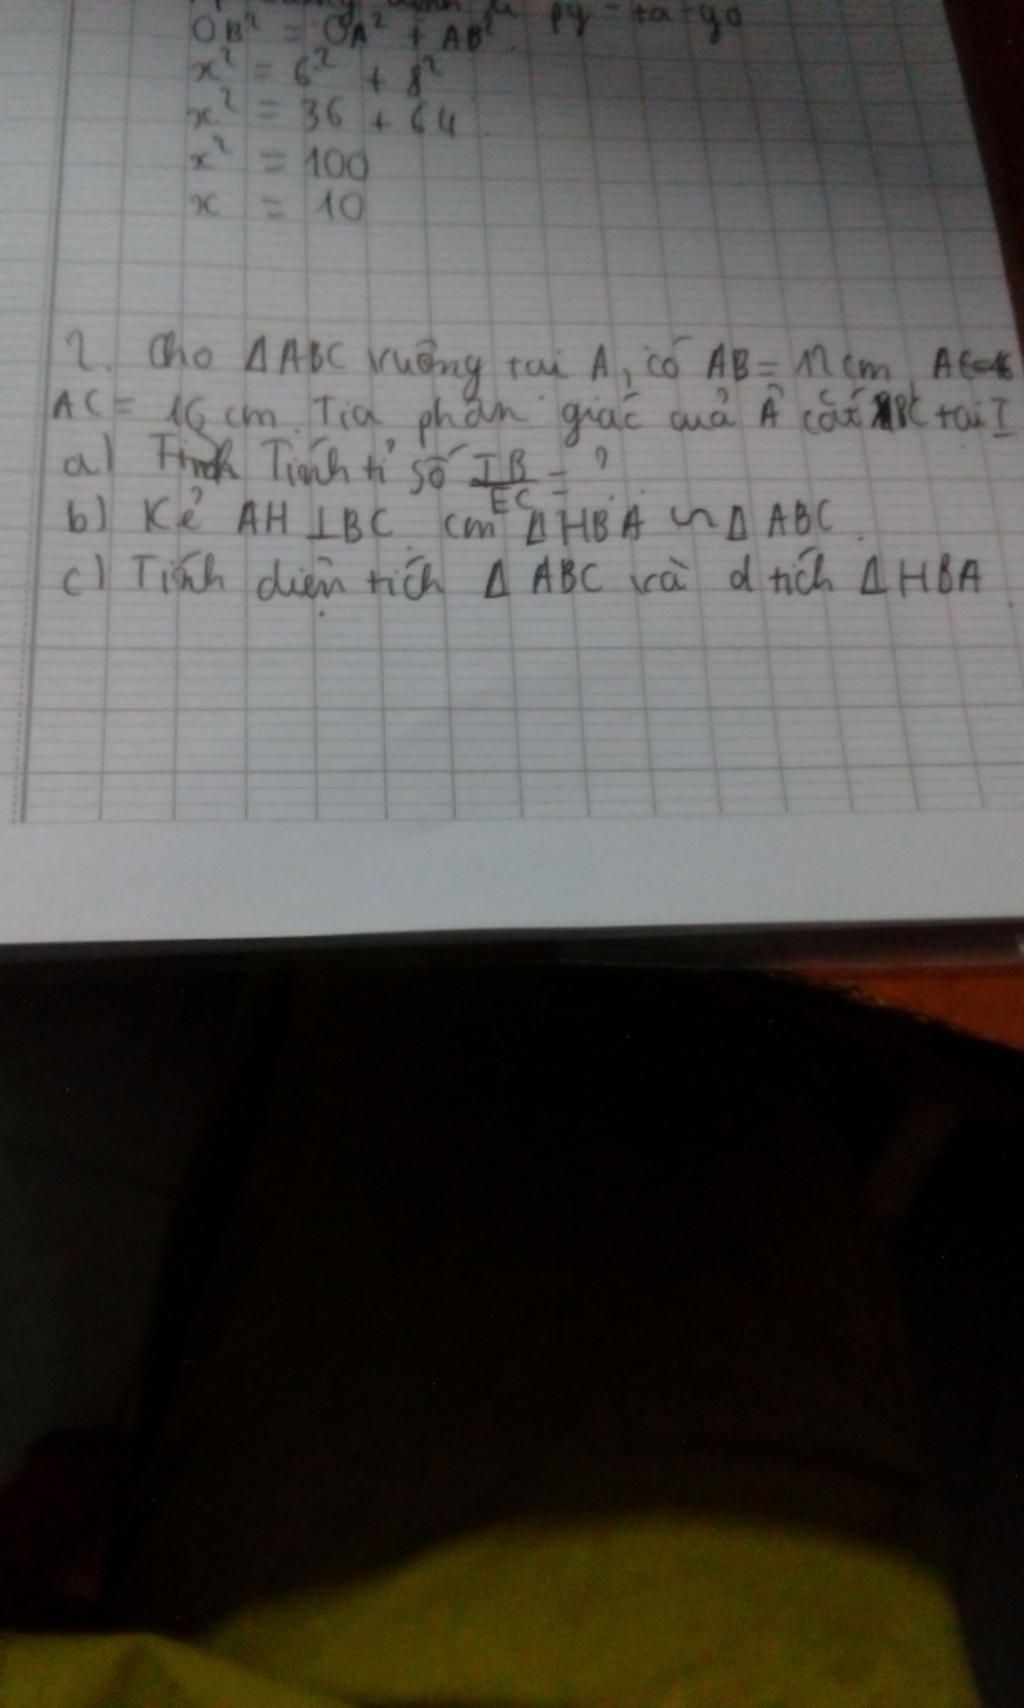 py-ta-go
OB² = OA² + AB²
x² = 6² + 8²
x² = 36 + 64
x² = 100
x = 10
2. Cho ΔABC vuông tại A, có AB = 12cm
AC = 16 cm. Tia phân giác của Â cắt BC tại I
a) Tính tỉ số IB/EC = ?
b) Kẻ AH ⊥ BC. cm ΔHBA ∽ ΔABC.
c) Tính diện tích Δ ABC và d tích ΔHBA